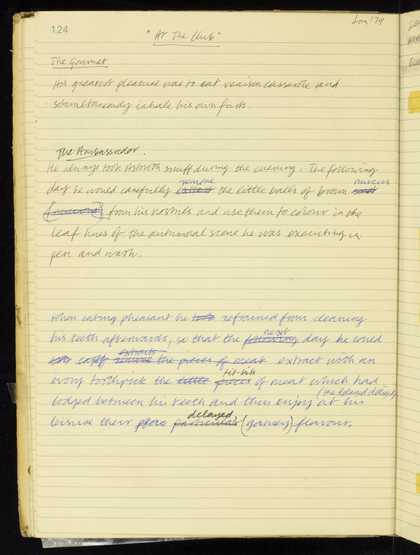 124
Jan '79
"At The Club"
The Gourmet
His greatest pleasure was to eat venison casserole and
simultaneously inhale his own farts.
The Ambassador.
He always took snuff during the evening. The following
remove mucus
day he would carefully extract the little balls of brown
(mucous) from his nostrils and use them to colour in the
leaf hues of the autumnal scene he was executing in
pen and wash.
When eating pheasant he refrained from cleaning
next
his teeth afterwards, so that the following day he could
extracts
remove the pieces of meat extract with an
tit-bits
ivory toothpick the little pieces of meat which had
(the delayed delights)
lodged between his teeth and then enjoy at his
delayed
leisure their (gamey) flavours.